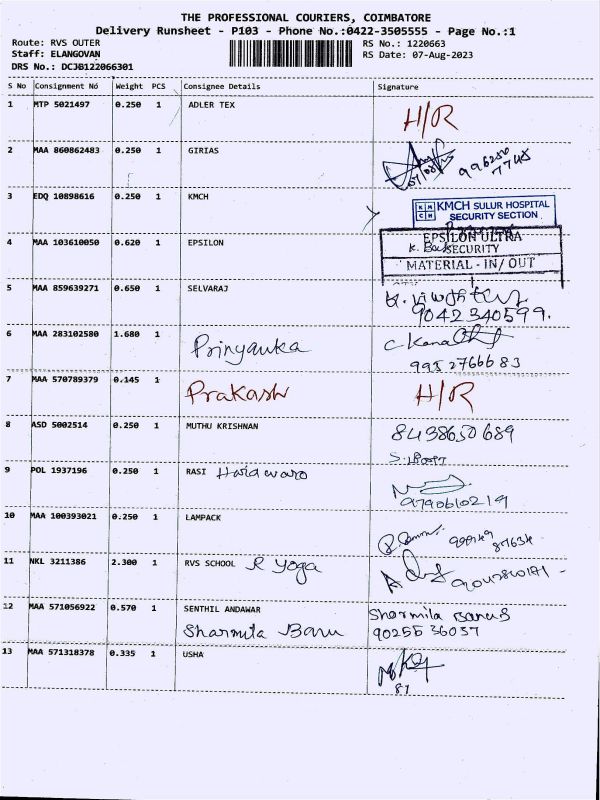 THE PROFESSIONAL COURIERS, COIMBATORE
Delivery Runsheet - P103 - Phone No.:0422-3505555 - Page No.:1
Route: RVS OUTER
Staff: ELANGOVAN
DRS No.: DCJB122066301
RS No.: 1220663
RS Date: 07-Aug-2023
S No Consignment No Weight PCS Consignee Details Signature
1 MTP 5021497 0.250 1 ADLER TEX H/R
2 MAA 860862483 0.250 1 GIRIAS
3 EDQ 10898616 0.250 1 KMCH
KMCH SULUR HOSPITAL
SECURITY SECTION
4 MAA 103610050 0.620 1 EPSILON
EPSILON ULTRA
SECURITY
MATERIAL - IN/OUT
5 MAA 859639271 0.650 1 SELVARAJ
9042340599.
6 MAA 283102580 1.680 1 Prinyanka
99527666 83
7 MAA 570789379 0.145 1 Prakash H/R
8 ASD 5002514 0.250 1 MUTHU KRISHNAN 8438650689
9 POL 1937196 0.250 1 RASI
9790610219
10 MAA 100393021 0.250 1 LAMPACK
11 NKL 3211386 2.300 1 RVS SCHOOL R Yoga
12 MAA 571056922 0.570 1 SENTHIL ANDAWAR Sharmila Banu
Sharmila Banu 90255 36037
13 MAA 571318378 0.335 1 USHA
81